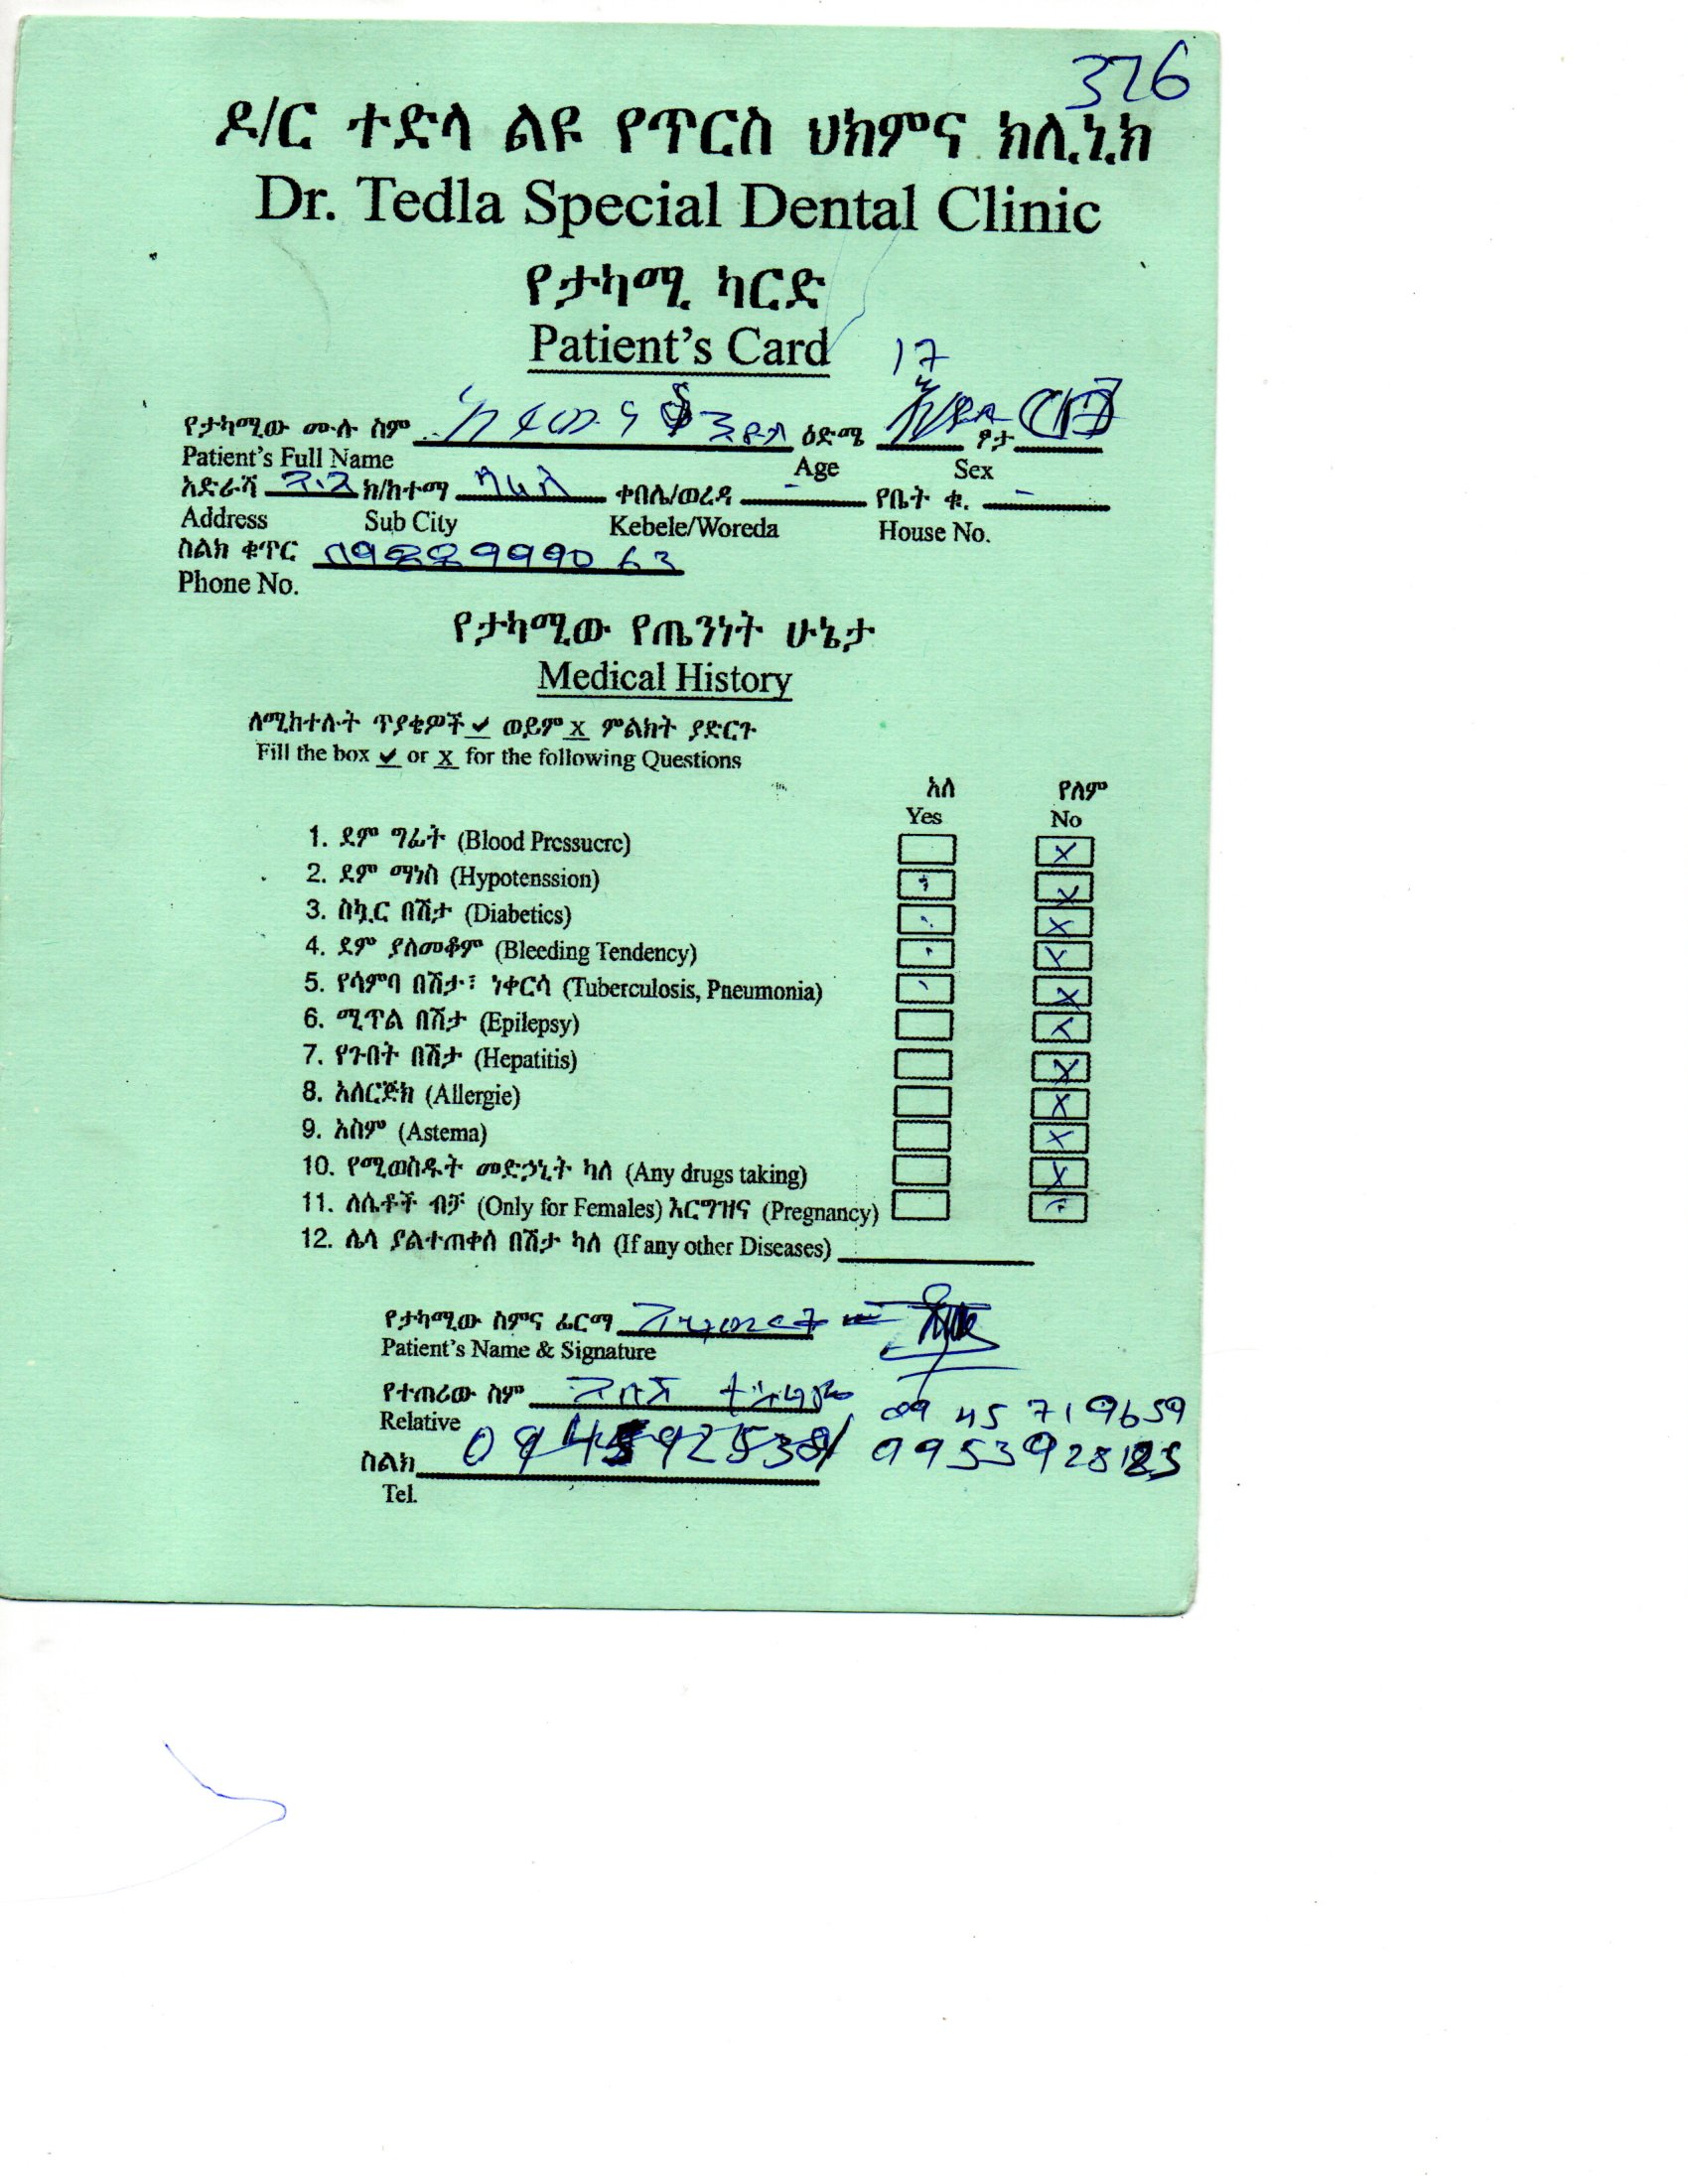 376
ዶ/ር ተድላ ልዩ የጥርስ ህክምና ክሊኒክ
Dr. Tedla Special Dental Clinic
የታካሚ ካርድ
Patient's Card
17
የታካሚው ሙሉ ስም ዕድሜ ፆታ
Patient's Full Name Age Sex
አድራሻ ክ/ከተማ ቀበሌ/ወረዳ - የቤት ቁ. -
Address Sub City Kebele/Woreda House No.
ስልክ ቁጥር
Phone No.
የታካሚው የጤንነት ሁኔታ
Medical History
ለሚከተሉት ጥያቄዎች ✓ ወይም x ምልክት ያድርጉ
Fill the box ✓ or x for the following Questions
አለ የለም
Yes No
1. ደም ግፊት (Blood Pressuere) x
2. ደም ማነስ (Hypotenssion) x
3. ስኳር በሽታ (Diabetics) x
4. ደም ያለመቆም (Bleeding Tendency) x
5. የሳምባ በሽታ፣ ነቀርሳ (Tuberculosis, Pneumonia) x
6. ሚጥል በሽታ (Epilepsy) x
7. የጉበት በሽታ (Hepatitis) x
8. አለርጅክ (Allergie) x
9. አስም (Astema) x
10. የሚወስዱት መድኃኒት ካለ (Any drugs taking) x
11. ለሴቶች ብቻ (Only for Females) እርግዝና (Pregnancy)
12. ሌላ ያልተጠቀሰ በሽታ ካለ (If any other Diseases)
የታካሚው ስምና ፊርማ
Patient's Name & Signature
የተጠሪው ስም
Relative 09 45 719659
ስልክ
Tel.